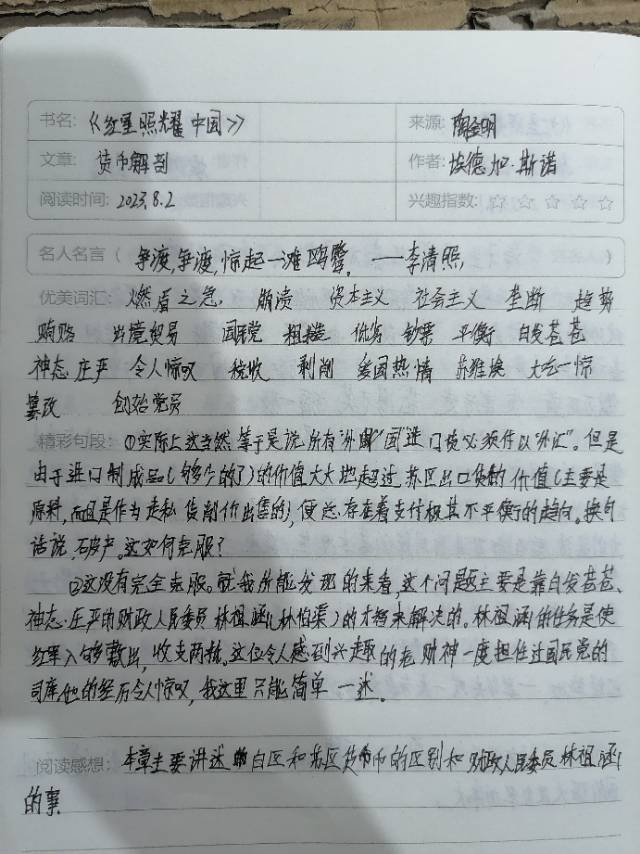 书名: 《红星照耀中国》 来源: 陶金明
文章: 货币解剖 作者: 埃德加·斯诺
阅读时间: 2023.8.2 兴趣指数: ☆ ☆ ☆ ☆ ☆
名人名言 ( 争渡,争渡,惊起一滩鸥鹭。 ——李清照 )
优美词汇: 燃眉之急 崩溃 资本主义 社会主义 垄断 趋势
购赂 出境贸易 国民党 粗糙 优劣 钞票 平衡 白发苍苍
神态庄严 令人惊叹 税收 剥削 爱国热情 苏维埃 大吃一惊
篡改 创始党员
精彩句段: ①实际上这当然等于是说所有"外国"进口货必须付以"外汇"。但是
由于进口制成品(够少的了)的价值大大地超过苏区出口货的价值(主要是
原料,而且是作为走私货削价出售的),便总存在着支付极其不平衡的趋向。换句
话说,破产。这如何克服?
②这没有完全克服。就我所能发现的来看,这个问题主要是靠白发苍苍、
神态庄严的财政人民委员林祖涵(林伯渠)的才智来解决的。林祖涵的任务是使
红军入够敷出,收支两抵。这位令人感到兴趣的老财神一度担任过国民党的
司库,他的经历令人惊叹,我这里只能简单一述。
阅读感想: 本章主要讲述的白区和苏区货币的区别和财政人民委员林祖涵
的事